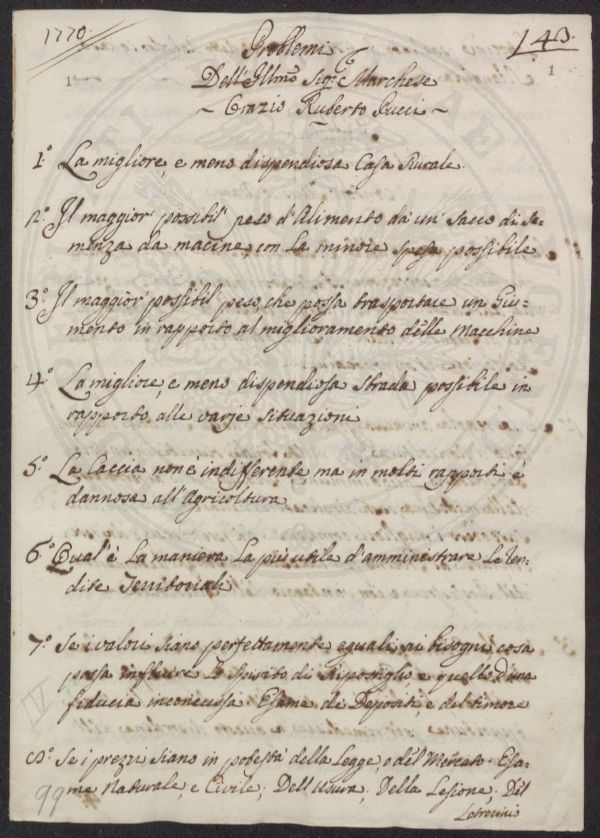 1770.
143.
1
1
Problemi
Dell'Illmo Sigre Marchese
~ Orazio Ruberto Pucci ~
1.° La migliore, e meno dispendiosa Casa Rurale.
2.° Il maggior possibil' peso d'Alimento da un' Sacco di Se-
menza da macine, con la minore spesa possibile
3.° Il maggior' possibil' peso, che possa trasportare un Giu-
mento in rapporto al miglioramento delle Macchine
4.° La migliore, e meno dispendiosa strada possibile in
rapporto alle varje situazioni
5.° La Caccia non è indifferente, ma in molti rapporti è
dannosa all'Agricoltura
6.° Qual'è la maniera la più utile d'amministrare le Ren-
dite Territoriali
7.° Se i valori siano perfettamente eguali ai bisogni cosa
possa influire lo Spirito di Ripostiglio e quello d'una
fiducia inconcussa Esame de Depositi, e del timore
8.° Se i prezzi siano in potestà della Legge, o del Mercato. Esa-
me Naturale, e Civile; Dell'Usura, Della Lesione, Del
Latrocinio
99
IV